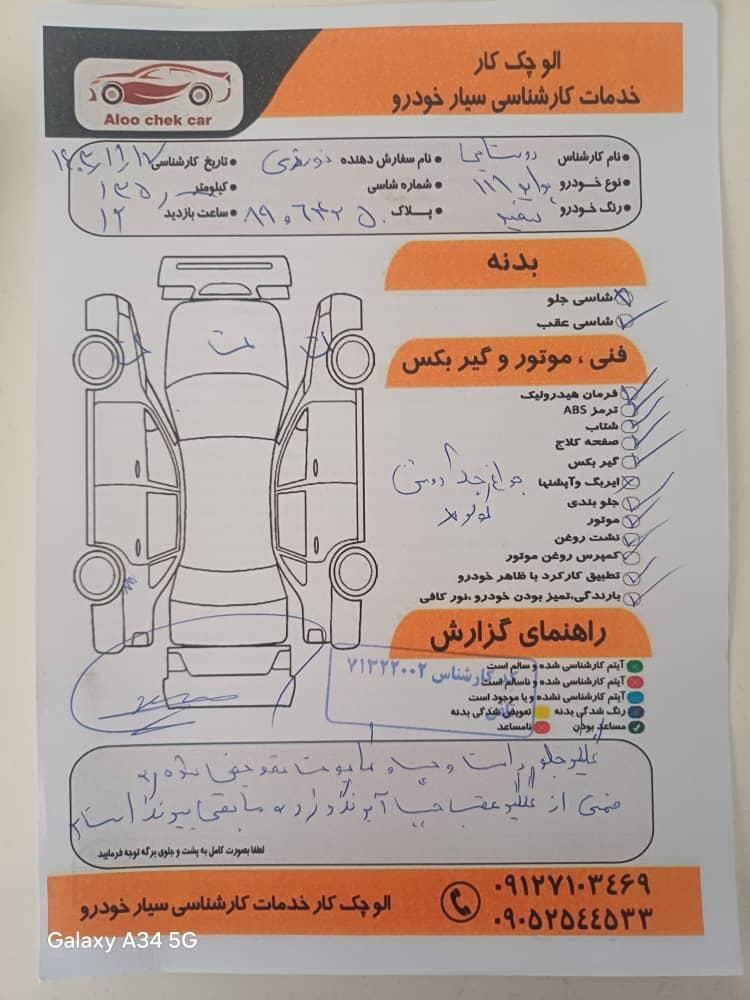 الو چک کار
خدمات کارشناسی سیار خودرو
Aloo chek car
نام کارشناس
نام سفارش دهنده
تاریخ کارشناسی
نوع خودرو ۱۱۹
شماره شاسی
کیلومتر
رنگ خودرو سفید
پلاک
ساعت بازدید ۱۲
بدنه
شاسی جلو
شاسی عقب
فنی ، موتور و گیر بکس
فرمان هیدرولیک
ترمز ABS
شتاب
صفحه کلاج
گیر بکس
ایربگ وآپشنها
جلو بندی
موتور
نشت روغن
کمپرس روغن موتور
تطبیق کارکرد با ظاهر خودرو
بارندگی،تمیز بودن خودرو ،نور کافی
راهنمای گزارش
آیتم کارشناسی شده و سالم است
آیتم کارشناسی شده و ناسالم است
آیتم کارشناسی نشده و یا موجود است
رنگ شدگی بدنه تعویض شدگی بدنه
مساعد بودن نامساعد
کارشناس ۷۱۳۲۲۰۰۲
گلگیر جلو راست و
ضمنی از گلگیر عقب
لطفا بصورت کامل به پشت و جلوی برگه توجه فرمایید
۰۹۱۲۷۱۰۳۴۶۹
۰۹۰۵۲۵۴۴۵۳۳
الو چک کار خدمات کارشناسی سیار خودرو
Galaxy A34 5G